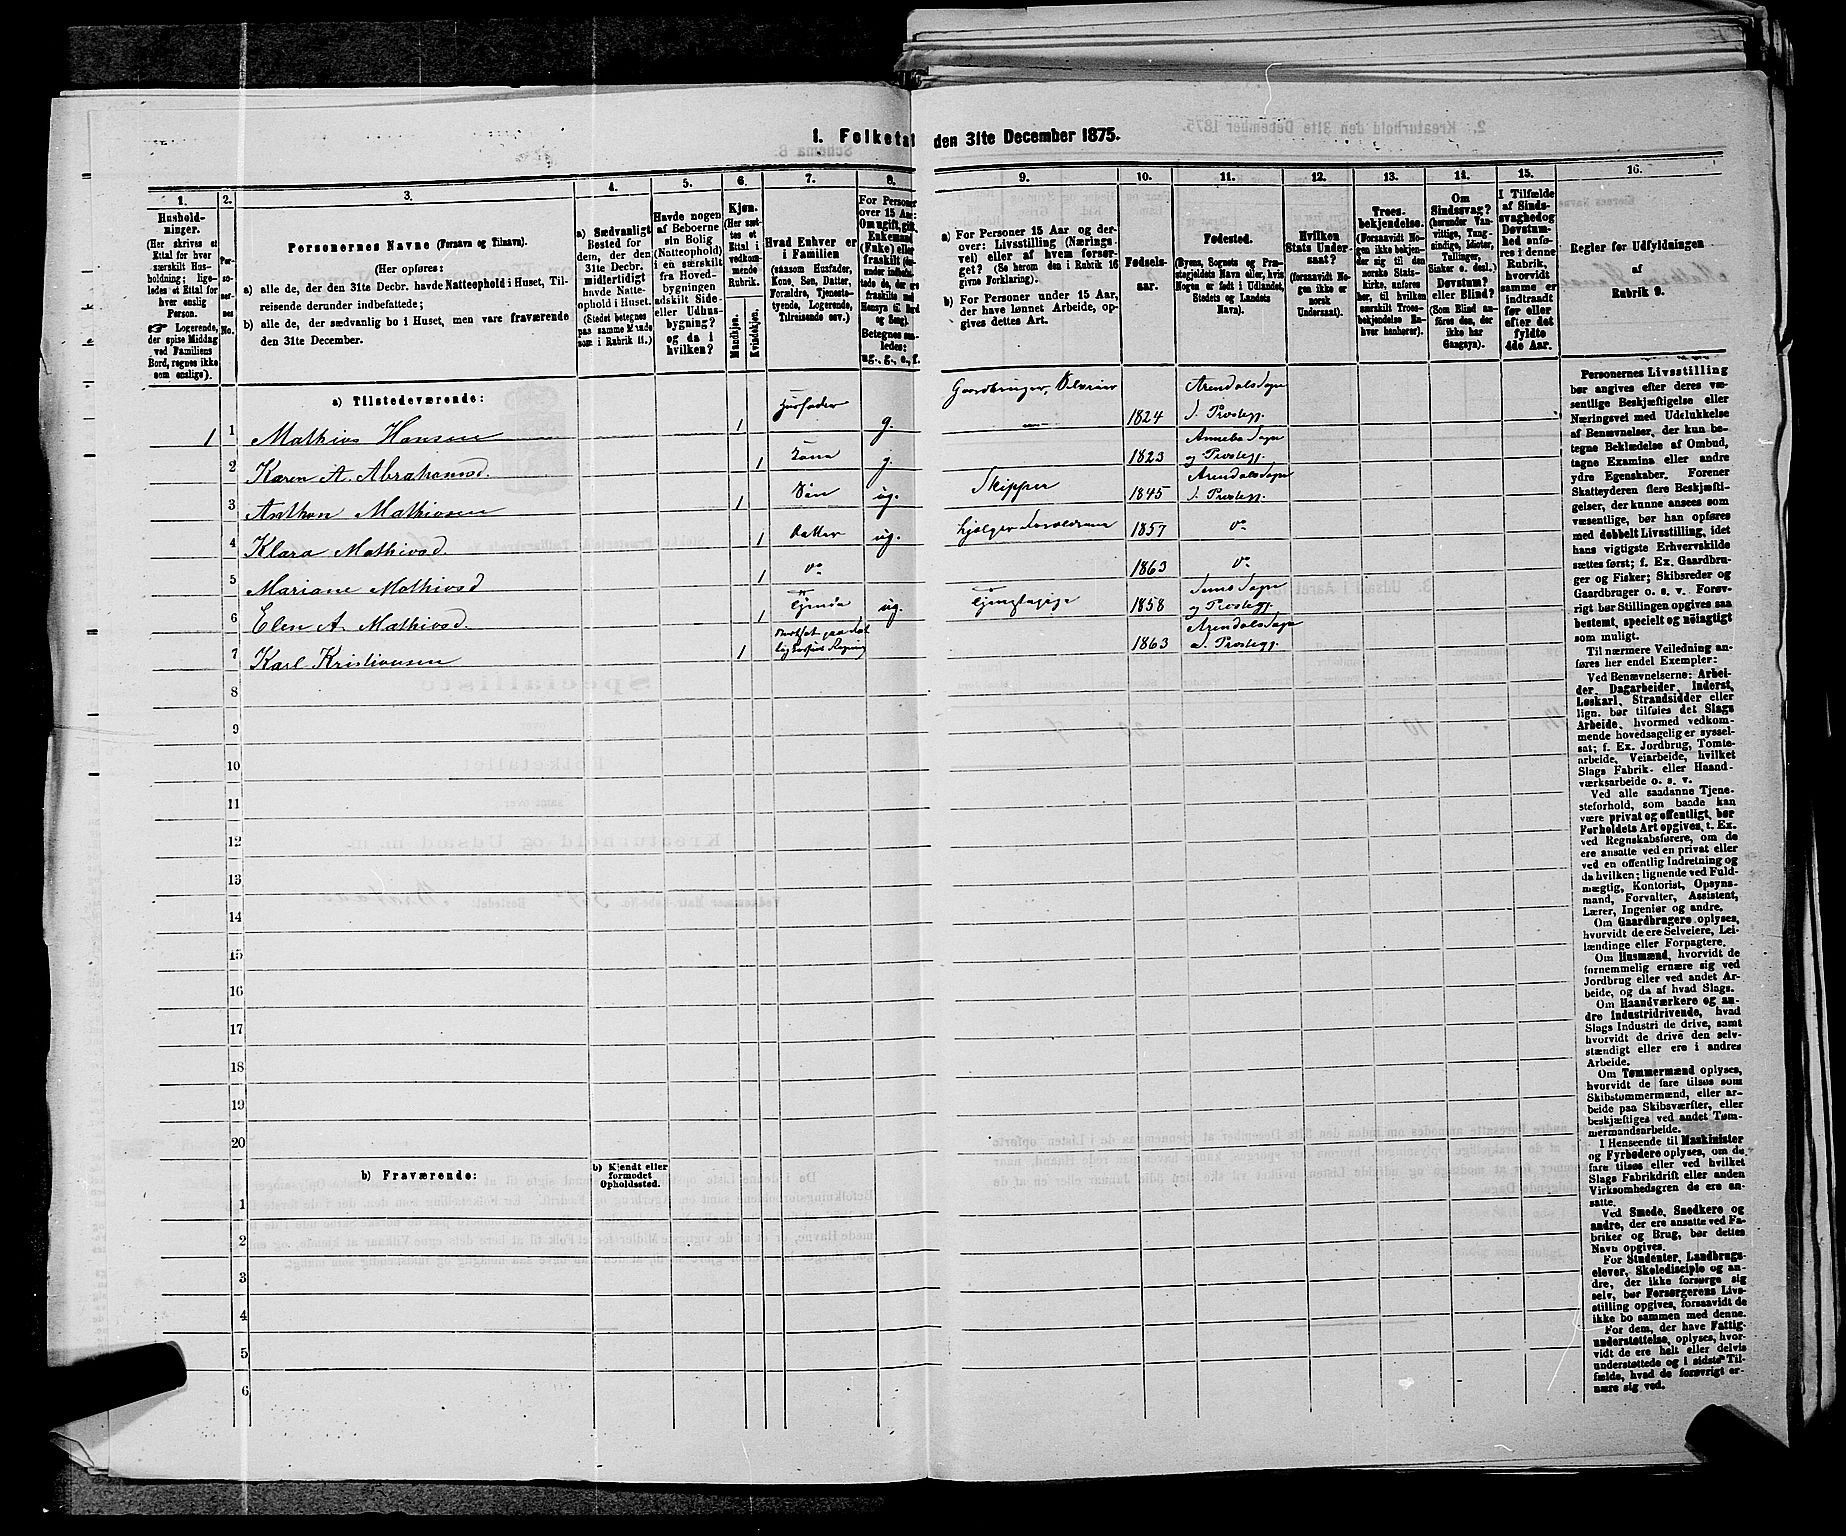 1. Folketal den 31te December 1875.
1. 2. 3. 4. 5. 6. 7. 8. 9. 10. 11. 12. 13. 14. 15. 16.
Hushold-
ninger.
(Her skrives et
Ettal for hver
særskilt Hus-
holdning; lige-
ledes et Ettal for
hver enslig
Person.
☞ Logerende,
der spise Middag
ved Familiens
Bord, regnes ikke
som enslige).
Per-
so-
ner-
nes
No.
Personernes Navne (Fornavn og Tilnavn).
(Her opføres:
a) alle de, der den 31te Decbr. havde Natteophold i Huset, Til-
reisende derunder indbefattede;
b) alle de, der sædvanlig bo i Huset, men vare fraværende
den 31te December.
a) Sædvanligt
Bosted for
dem, der den
31te Decbr.
midlertidigt
havde Natte-
ophold i Huset.
(Stedet betegnes
paa samme Maade
som i Rubrik 11.)
Havde nogen
af Beboerne
sin Bolig
(Natteophold)
i en særskilt
fra Hoved-
bygningen
adskilt Side-
eller Udhus-
bygning?
og da i
hvilken?
Kjøn.
(Her sæt-
tes et
Ettal i
vedkom-
mende
Rubrik.
Mandkjøn.
Kvindekjøn.
Hvad Enhver er
i Familien
(saasom Husfader,
Kone, Søn, Datter,
Forældre, Tjeneste-
tyende, Logerende,
Tilreisende osv.)
For Personer
over 15 Aar:
Om ugift, gift,
Enkemand
(Enke) eller
fraskilt
Betegnes saa-
ledes:
ug., g., e., f.
a) For Personer 15 Aar og der-
over: Livsstilling (Nærings-
vei) eller af hvem forsør-
get? (Se herom den i Rubrik 16
givne Forklaring).
b) For Personer under 15 Aar,
der have lønnet Arbeide, op-
gives dettes Art.
Fødsels-
aar.
Fødested.
(Byens, Sognets og Præ-
stegjeldets Navn eller, hvis
Nogen er født i Udlandet,
Stedets og Landets
Navn).
Hvilken
Stats Under-
saat?
(forsaavidt No-
gen ikke er
norsk
Undersaat).
Troes-
bekjendelse.
(Forsaavidt No-
gen ikke bekjen-
der sig til den
norske Stats-
kirke, anføres
her, til hvilken
særskilt Troes-
bekjendelse En-
hver henhører).
Om
Sindssvag?
(herunder Van-
vittige, Tung-
sindige, Idioter,
Tullinger,
Sinker o. desl.)
Døvstum?
eller Blind?
(Som Blind an-
føres den, der
ikke har
Gangsyn).
I Tilfælde
af Sinds-
svaghed og
Døvstum-
hed anfø-
res i denne
Rubrik,
hvorvidt
samme er
indtraadt
før eller
efter det
fyldte
4de Aar.
Regler for Udfyldningen
af
Rubrik 9.
a) Tilstedeværende:
1 1 Mathias Hansen 1 Husfader g. Gaardbruger, Selveier 1824 Arendals Sogn
o. Prostegj.
2 Karen A. Abrahamsd. 1 Kone g. 1823 Annebo Sogn
og Prostegj.
3 Anthon Mathiasen 1 Søn ug. Skipper 1845 Arendals Sogn
o. Prostegj.
4 Klara Mathiasd. 1 Datter ug. hjælper Forældrene 1857 do
5 Mariane Mathiasd 1 do 1863 do
6 Elen A. Mathiasd. 1 Tjener ug. Tjenestepige 1858 Sogn
og Prostegj.
7 Karl Kristiansen 1 1863 Arendals Sogn
o. Prostegj.
8
9
10
11
12
13
14
15
16
17
18
19
20
b) Fraværende:
b) Kjendt eller
formodet
Opholdssted.
1
2
3
4
5
6
Personernes Livsstilling
bør angives efter deres væ-
sentlige Beskjæftigelse eller
Næringsvei med Udelukkelse
af Benævnelser, der kun be-
tegne Beklædelse af Ombud,
tagne Examina eller andre
ydre Egenskaber. Forener
Skatteyderen flere Beskjæfti-
gelser, der kunne ansees som
væsentlige, bør han opføres
med dobbelt Livsstilling, idet
hans vigtigste Erhvervskilde
sættes først; f. Ex. Gaardbru-
ger og Fisker; Skibsreder og
Gaardbruger o. s. v. Forøv-
rigt bør Stillingen opgives saa
bestemt, specielt og nøiagtigt
som muligt.
Til nærmere Veiledning an-
føres her endel Exempler:
Ved Benævnelserne: Arbei-
der, Dagarbeider, Inderst,
Løskarl, Strandsidder eller
lign. bør tilføies det Slags
Arbeide, hvormed vedkom-
mende hovedsagelig er syssel-
sat; f. Ex. Jordbrug, Tomte-
arbeide, Veiarbeide, hvilket
Slags Fabrik- eller Haand-
værksarbeide o. s. v.
Ved alle saadanne Tjene-
steforhold, som baade kan
være privat og offentligt, bør
Forholdets Art opgives, t. Ex.
ved Regnskabsførere, om de
ere ansatte ved en privat eller
ved en offentlig Indretning og
da hvilken; lignende ved Fuld-
mægtig, Kontorist, Opsyns-
mand, Forvalter, Assistent,
Lærer, Ingeniør og andre.
Om Gaardbrugere oplyses,
hvorvidt de ere Selveiere, Lei-
lændinge eller Forpagtere.
Om Husmænd, hvorvidt de
fornemmelig ernære sig ved
Jordbrug eller ved andet Ar-
beide, og da af hvad Slags.
Om Haandværkere og an-
dre Industridrivende, hvad
Slags Industri de drive, samt
hvorvidt de drive den selv-
stændigt eller ere i andres
Arbeide.
Om Tømmermænd oplyses,
hvorvidt de fare tilsøs som
Skibstømmermænd, eller ar-
beide paa Skibsværfter, eller
beskjæftiges ved andet Tøm-
mermandsarbeide.
I Henseende til Maskinister
og Fyrbødere oplyses, om de
fare tilsøs eller ved hvilket
Slags Fabrikdrift eller anden
Virksomhedsgren de ere an-
satte.
Ved Smede, Snedkere og
andre, der ere ansatte ved Fa-
briker og Brug, bør dettes
Navn opgives.
For Studenter, Landbrugs-
elever, Skoledisciple og an-
dre, der ikke forsørge sig
selv, bør Forsørgerens Livs-
stilling opgives, forsaavidt de
ikke bo sammen med denne.
For dem, der have Fattig-
understøttelse, oplyses, hvor-
vidt de ere helt eller delvis
understøttede og i sidste Til-
fælde, hvad de forøvrigt er-
nære sig ved.